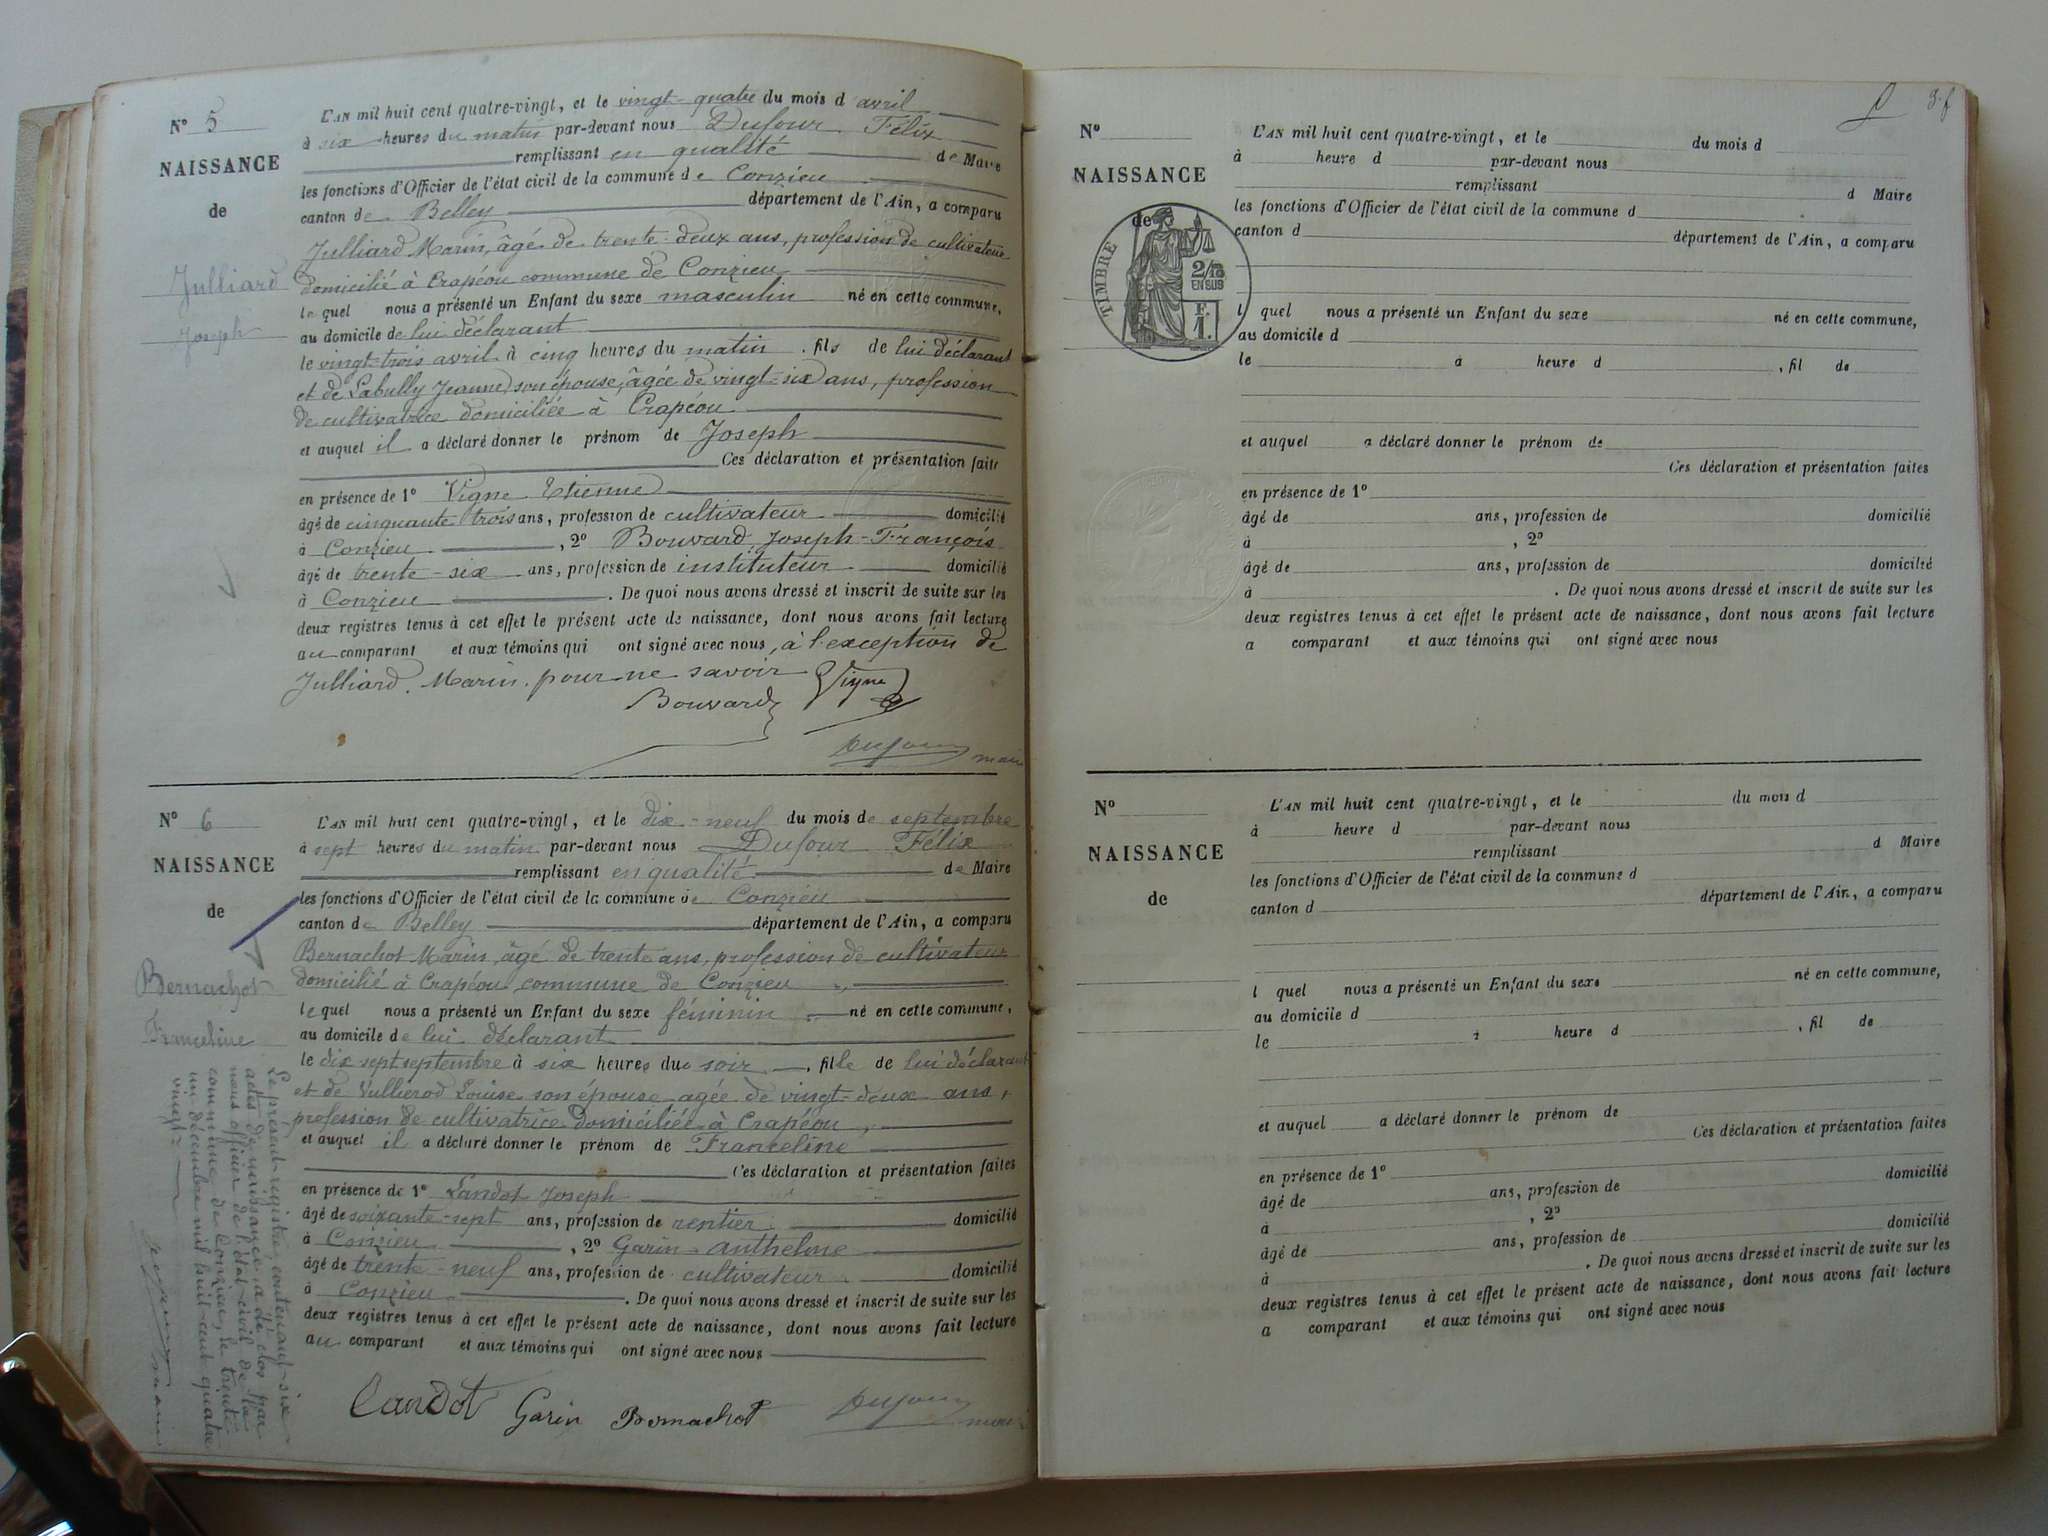 N° 5
NAISSANCE
de
Julliard
Joseph
L'AN mil huit cent quatre-vingt, et le vingt-quatre du mois d'avril
à six heures du matin par-devant nous Dufour Félix
remplissant en qualité de Maire
les fonctions d'Officier de l'état civil de la commune de Conzieu
canton de Belley département de l'Ain, a comparu
Julliard Marin, âgé de trente-deux ans, profession de cultivateur
domicilié à Crapéou commune de Conzieu
lequel nous a présenté un Enfant du sexe masculin né en cette commune,
au domicile de lui déclarant
le vingt-trois avril à cinq heures du matin, fils de lui déclarant
et de Labully Jeanne, son épouse, âgée de vingt-six ans, profession
de cultivatrice domiciliée à Crapéou
et auquel il a déclaré donner le prénom de Joseph
Ces déclaration et présentation faites
en présence de 1° Vigne Etienne
âgé de cinquante trois ans, profession de cultivateur domicilié
à Conzieu, 2° Bouvard Joseph-François
âgé de trente-six ans, profession de instituteur domicilié
à Conzieu. De quoi nous avons dressé et inscrit de suite sur les
deux registres tenus à cet effet le présent acte de naissance, dont nous avons fait lecture
au comparant et aux témoins qui ont signé avec nous, à l'exception de
Julliard Marin pour ne savoir Vigne
Bouvard
Dufour maire
N° 6
NAISSANCE
de
Bernachot
Franceline
L'AN mil huit cent quatre-vingt, et le dix-neuf du mois de septembre
à sept heures du matin par-devant nous Dufour Félix
remplissant en qualité de Maire
les fonctions d'Officier de l'état civil de la commune de Conzieu
canton de Belley département de l'Ain, a comparu
Bernachot Marin, âgé de trente ans, profession de cultivateur
domicilié à Crapéou, commune de Conzieu
lequel nous a présenté un Enfant du sexe féminin né en cette commune,
au domicile de lui déclarant
le dix sept septembre à six heures du soir, fille de lui déclarant
et de Vullierod Louise son épouse agée de vingt-deux ans,
profession de cultivatrice domiciliée à Crapéou,
et auquel il a déclaré donner le prénom de Franceline
Ces déclaration et présentation faites
en présence de 1° Landot Joseph
âgé de soixante-sept ans, profession de rentier domicilié
à Conzieu, 2° Garin Anthelme
âgé de trente-neuf ans, profession de cultivateur domicilié
à Conzieu. De quoi nous avons dressé et inscrit de suite sur les
deux registres tenus à cet effet le présent acte de naissance, dont nous avons fait lecture
au comparant et aux témoins qui ont signé avec nous
Landot Garin Bernachot Dufour maire
Le présent registre contenant six
actes de naissance a été clos par
nous officier de l'état-civil de la
commune de Conzieu, le trente
un décembre mil huit cent quatre
vingt
Dufour maire
N°
NAISSANCE
de
TIMBRE
2/10
EN SUS
F.
1.
L'AN mil huit cent quatre-vingt, et le du mois d
à heure d par-devant nous
remplissant d Maire
les fonctions d'Officier de l'état civil de la commune d
canton d département de l'Ain, a comparu
l quel nous a présenté un Enfant du sexe né en cette commune,
au domicile d
le à heure d , fil de
et auquel a déclaré donner le prénom de
Ces déclaration et présentation faites
en présence de 1°
âgé de ans, profession de domicilié
à , 2°
âgé de ans, profession de domicilié
à . De quoi nous avons dressé et inscrit de suite sur les
deux registres tenus à cet effet le présent acte de naissance, dont nous avons fait lecture
a comparant et aux témoins qui ont signé avec nous
N°
NAISSANCE
de
L'AN mil huit cent quatre-vingt, et le du mois d
à heure d par-devant nous
remplissant d Maire
les fonctions d'Officier de l'état civil de la commune d
canton d département de l'Ain, a comparu
l quel nous a présenté un Enfant du sexe né en cette commune,
au domicile d
le à heure d , fil de
et auquel a déclaré donner le prénom de
Ces déclaration et présentation faites
en présence de 1°
âgé de ans, profession de domicilié
à , 2°
âgé de ans, profession de domicilié
à . De quoi nous avons dressé et inscrit de suite sur les
deux registres tenus à cet effet le présent acte de naissance, dont nous avons fait lecture
a comparant et aux témoins qui ont signé avec nous